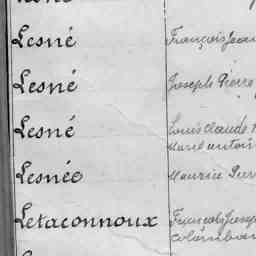 Lesné François Jean
Lesné Joseph Pierre
Lesné Louis Claude
Marie antoin
Lesnée Maurice
Letaconnoux François Joseph
Colomban